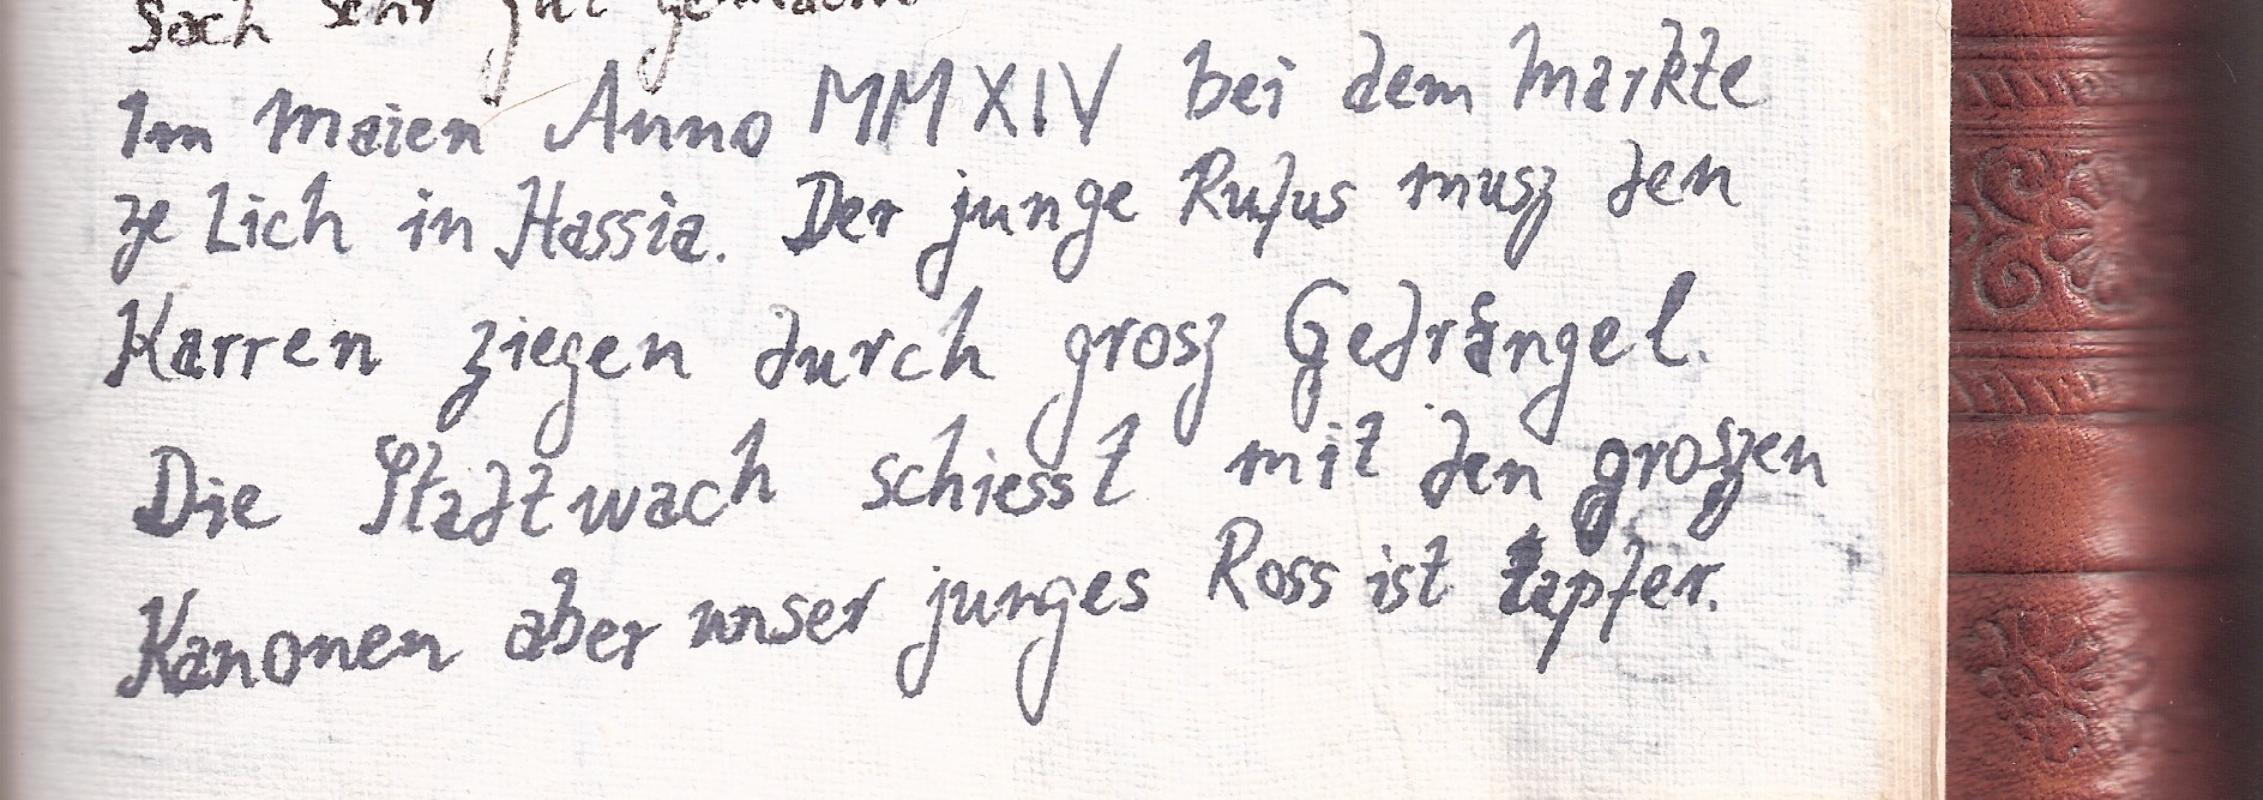 Sach sehr gut gemacht
Im Maien Anno MMXIV bei dem Markte
ze Lich in Hassia. Der junge Rufus musz den
Karren ziegen durch grosz Gedrängel.
Die Stadtwach schiesst mit den groszen
Kanonen aber unser junges Ross ist tapfer.